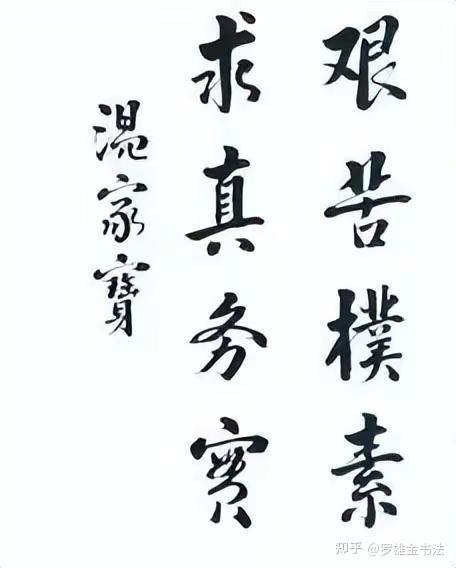 艰苦樸素
求真务實
温家寶
知乎 @罗雄金书法